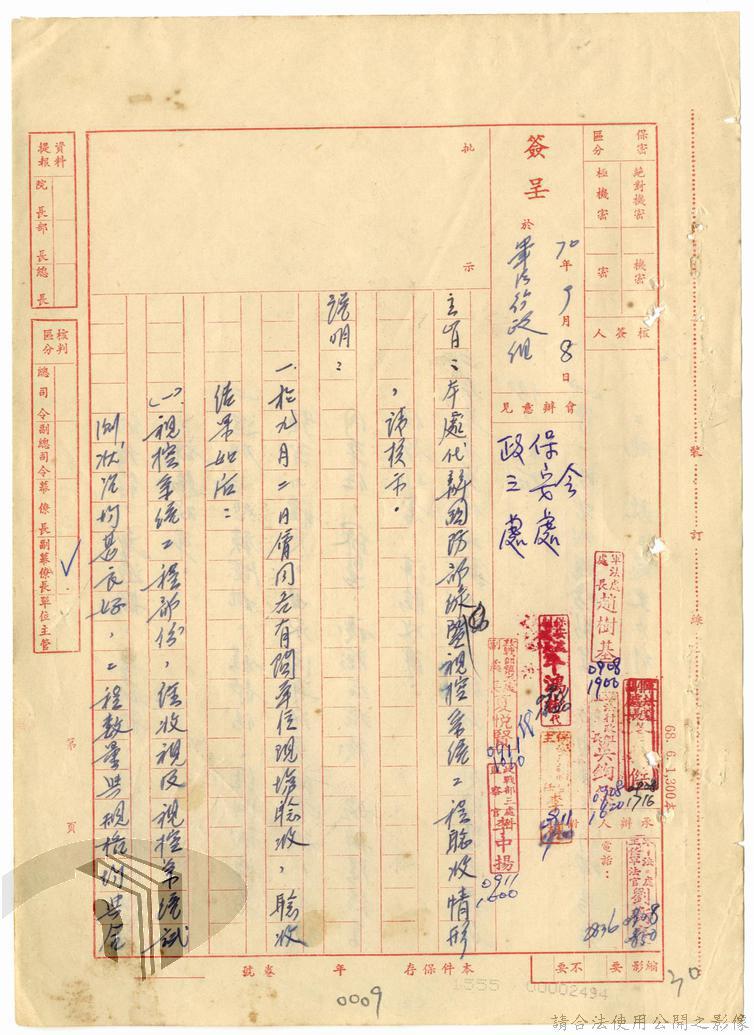 保密區分
絕對機密
極機密
機密
密
核簽人
承辦人
電話：2836
縮影 要 不要
簽呈
於
軍法行政組
70年9月8日
會辦意見
會
保安處
政三處
軍法處處長趙樹基
0908
1900
0908
1620
0908
1716
0911
1600
李中揚
批
示
主旨：本處代辦國防部綠島監視控系統工程驗收情形
，請核示。
說明：
一、於九月二日會同各有關單位現場驗收，驗收
結果如后：
(一)視控系統工程部份，經收視及視控系統試
測狀況均甚良好，工程數量與規格均與合
資料提報
院長
部長
總長
核判區分
總司令
副總司令
幕僚長
副幕僚長
單位主管
✓
第 頁
本件保存 年 卷號
裝訂線
68.6.1,300本
1555 00002494
0009
30
請合法使用公開之影像